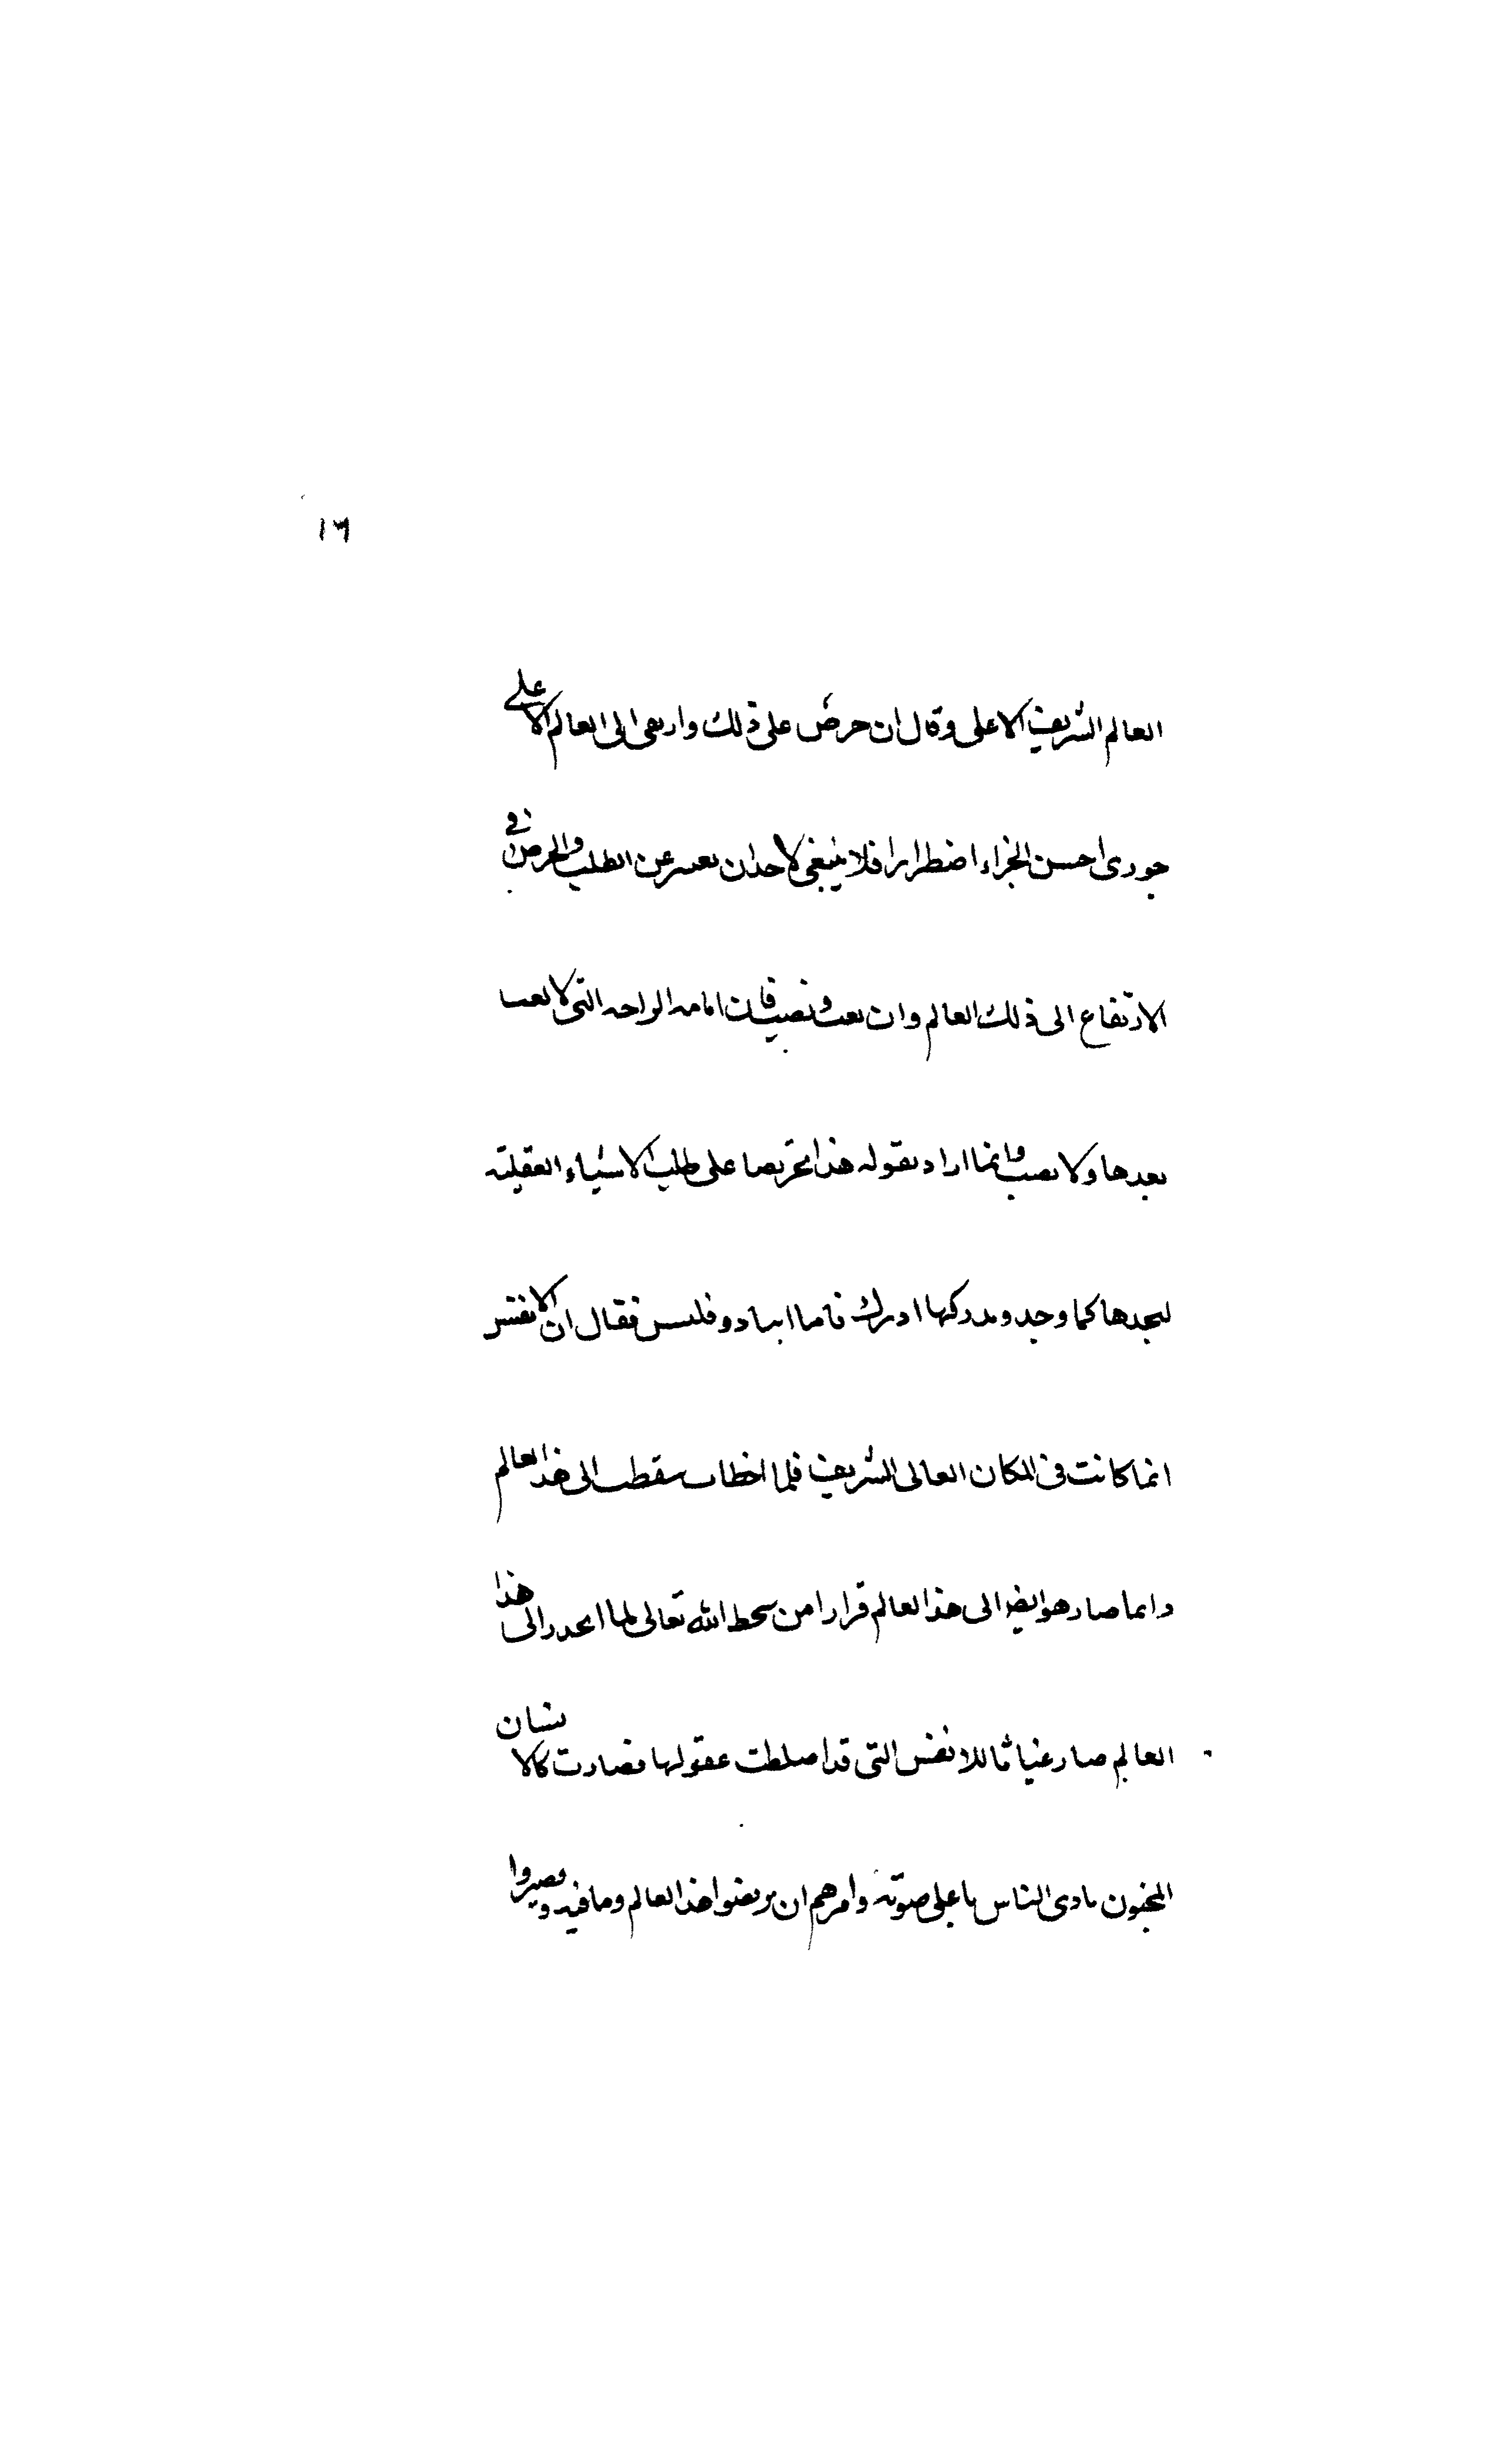 ١٣
العالم الشريف الاعلى وقال ان حرص على ذلك وارتقى الى العالم الاعلى
جوزى احسن الجزاء اضطرارا فلا ينبغى لاحد ان يفتر عن الطلب والحرص فى
الارتفاع الى ذلك العالم وان تعب ونصب فان امامه الراحه التى لا تعب
بعدها ولا نصب وانما اراد بقوله هذا تحريصا على طلب الاشياء العقليته
ليجدها كما وجد ويدركها ادرك فاما انبادوفليس فقال ان الانفس
انما كانت فى المكان العالى الشريف فلما اخطات سقطت الى هذا العالم
وانما صار هو ايضا الى هذا العالم فرارا من سخط الله تعالى لما انحدر الى هذا
العالم صار غياثا للانفس التى قد اختلطت عقولها فصارت كالانسان
المجنون نادى الناس باعلى صوته وامرهم ان يرفضوا هذا العالم وما فيه ويصيروا